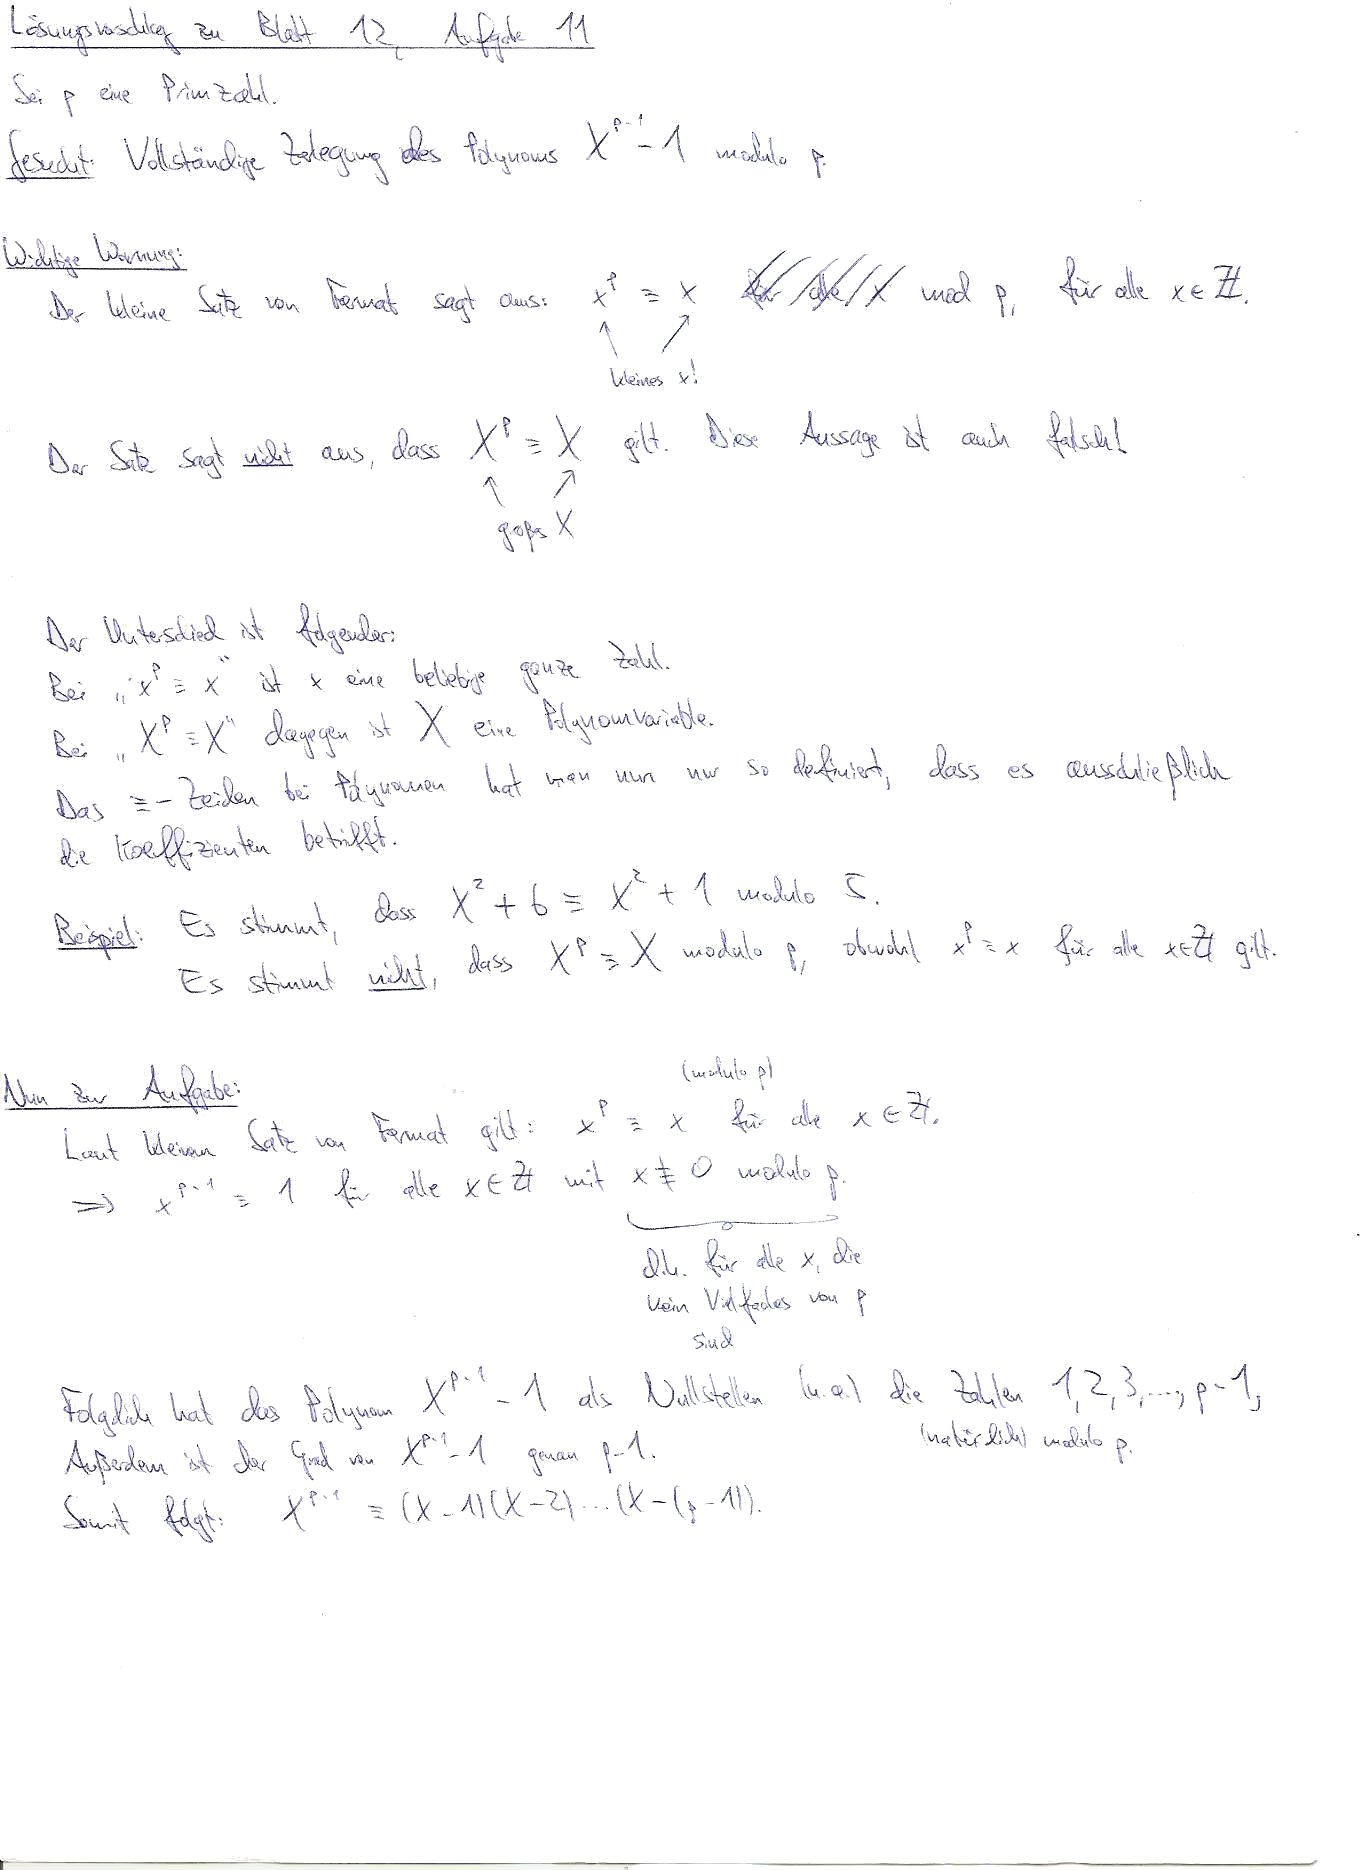 Lösungsvorschlag zu Blatt 12, Aufgabe 11
Sei p eine Primzahl.
Gesucht: Vollständige Zerlegung des Polynoms X^{p-1} - 1 modulo p.
Wichtige Warnung:
Der kleine Satz von Fermat sagt aus: x^p ≡ x ~~für alle X~~ mod p, für alle x ∈ ℤ.
↑ ↗
kleines x!
Der Satz sagt nicht aus, dass X^p ≡ X gilt. Diese Aussage ist auch falsch!
↑ ↗
großes X
Der Unterschied ist folgender:
Bei „x^p ≡ x“ ist x eine beliebige ganze Zahl.
Bei „X^p ≡ X“ dagegen ist X eine Polynomvariable.
Das ≡-Zeichen bei Polynomen hat man nun nur so definiert, dass es ausschließlich
die Koeffizienten betrifft.
Beispiel: Es stimmt, dass X² + 6 ≡ X² + 1 modulo 5.
Es stimmt nicht, dass X^p ≡ X modulo p, obwohl x^p ≡ x für alle x ∈ ℤ gilt.
Nun zur Aufgabe:
(modulo p)
Laut kleinem Satz von Fermat gilt: x^p ≡ x für alle x ∈ ℤ.
⇒ x^{p-1} ≡ 1 für alle x ∈ ℤ mit x ≢ 0 modulo p.
d.h. für alle x, die
kein Vielfaches von p
sind
Folglich hat das Polynom X^{p-1} - 1 als Nullstellen (u.a.) die Zahlen 1, 2, 3, ..., p-1,
(natürlich) modulo p.
Außerdem ist der Grad von X^{p-1} - 1 genau p-1.
Somit folgt: X^{p-1} ≡ (X-1)(X-2)...(X-(p-1)).